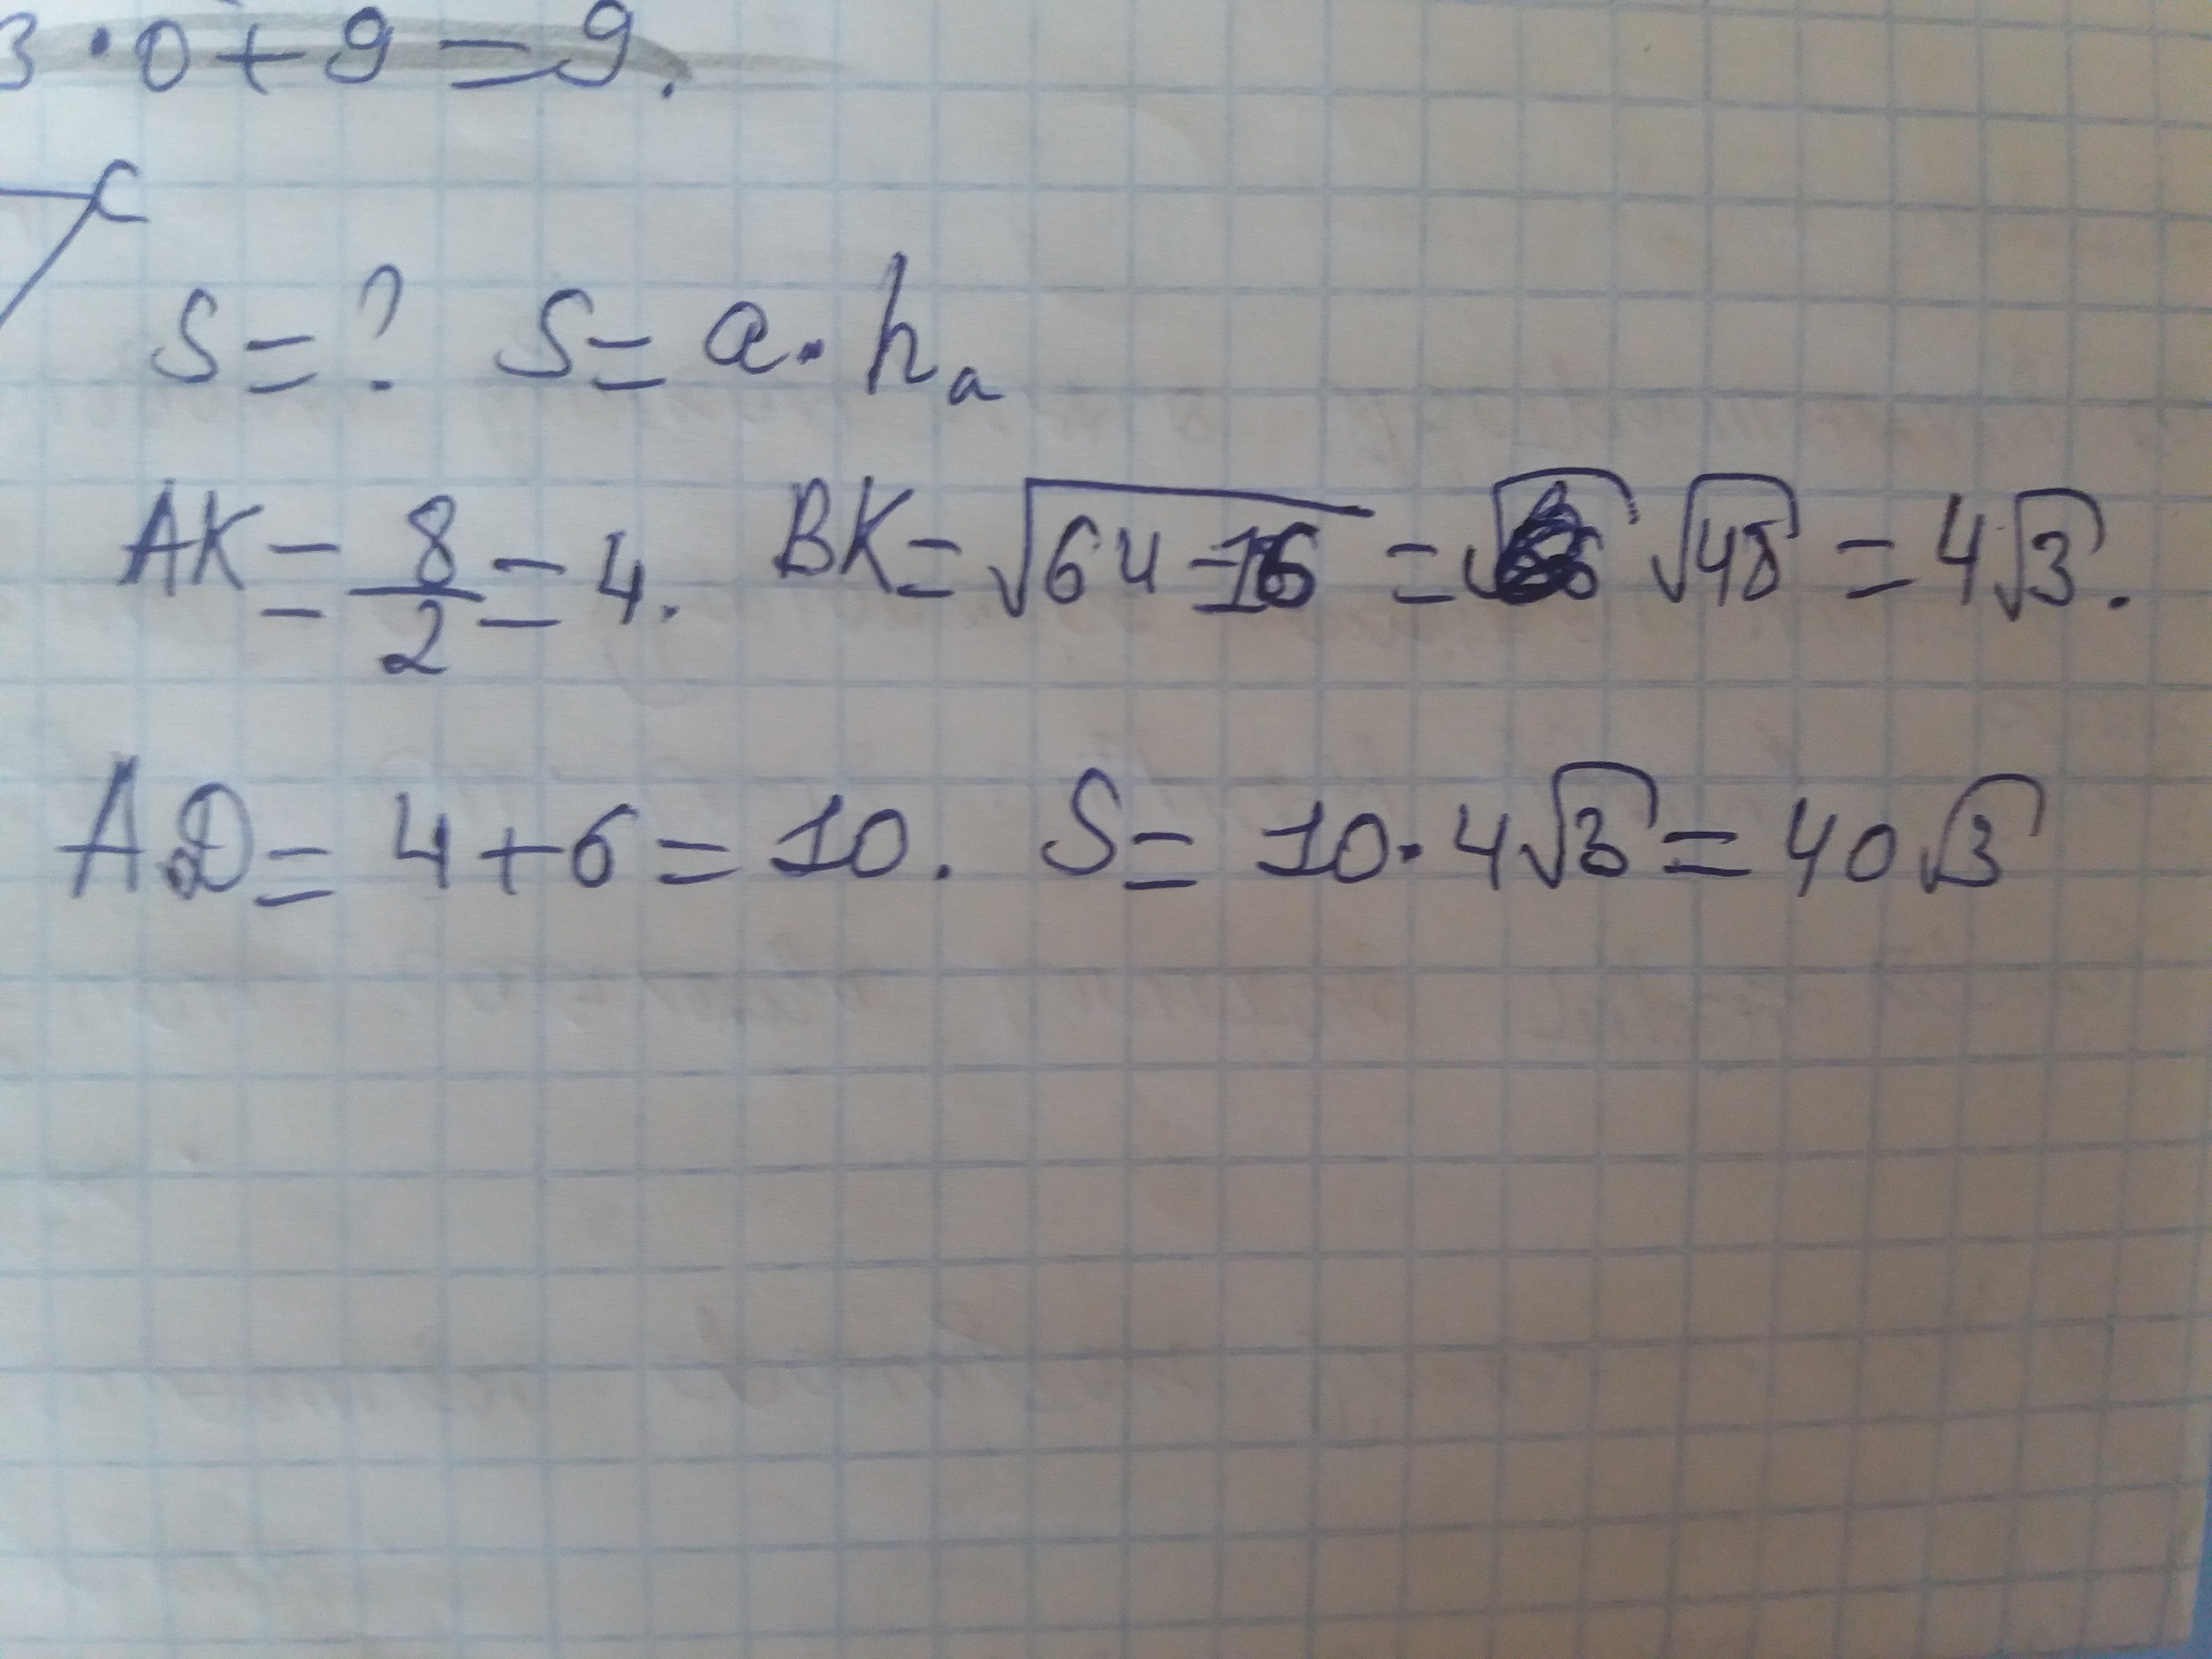 3·0+9=9.
C
S=? S=a·hₐ
AK=8/2=4. BK=√64-16= √48=4√3.
AD=4+6=10. S=10·4√3=40√3